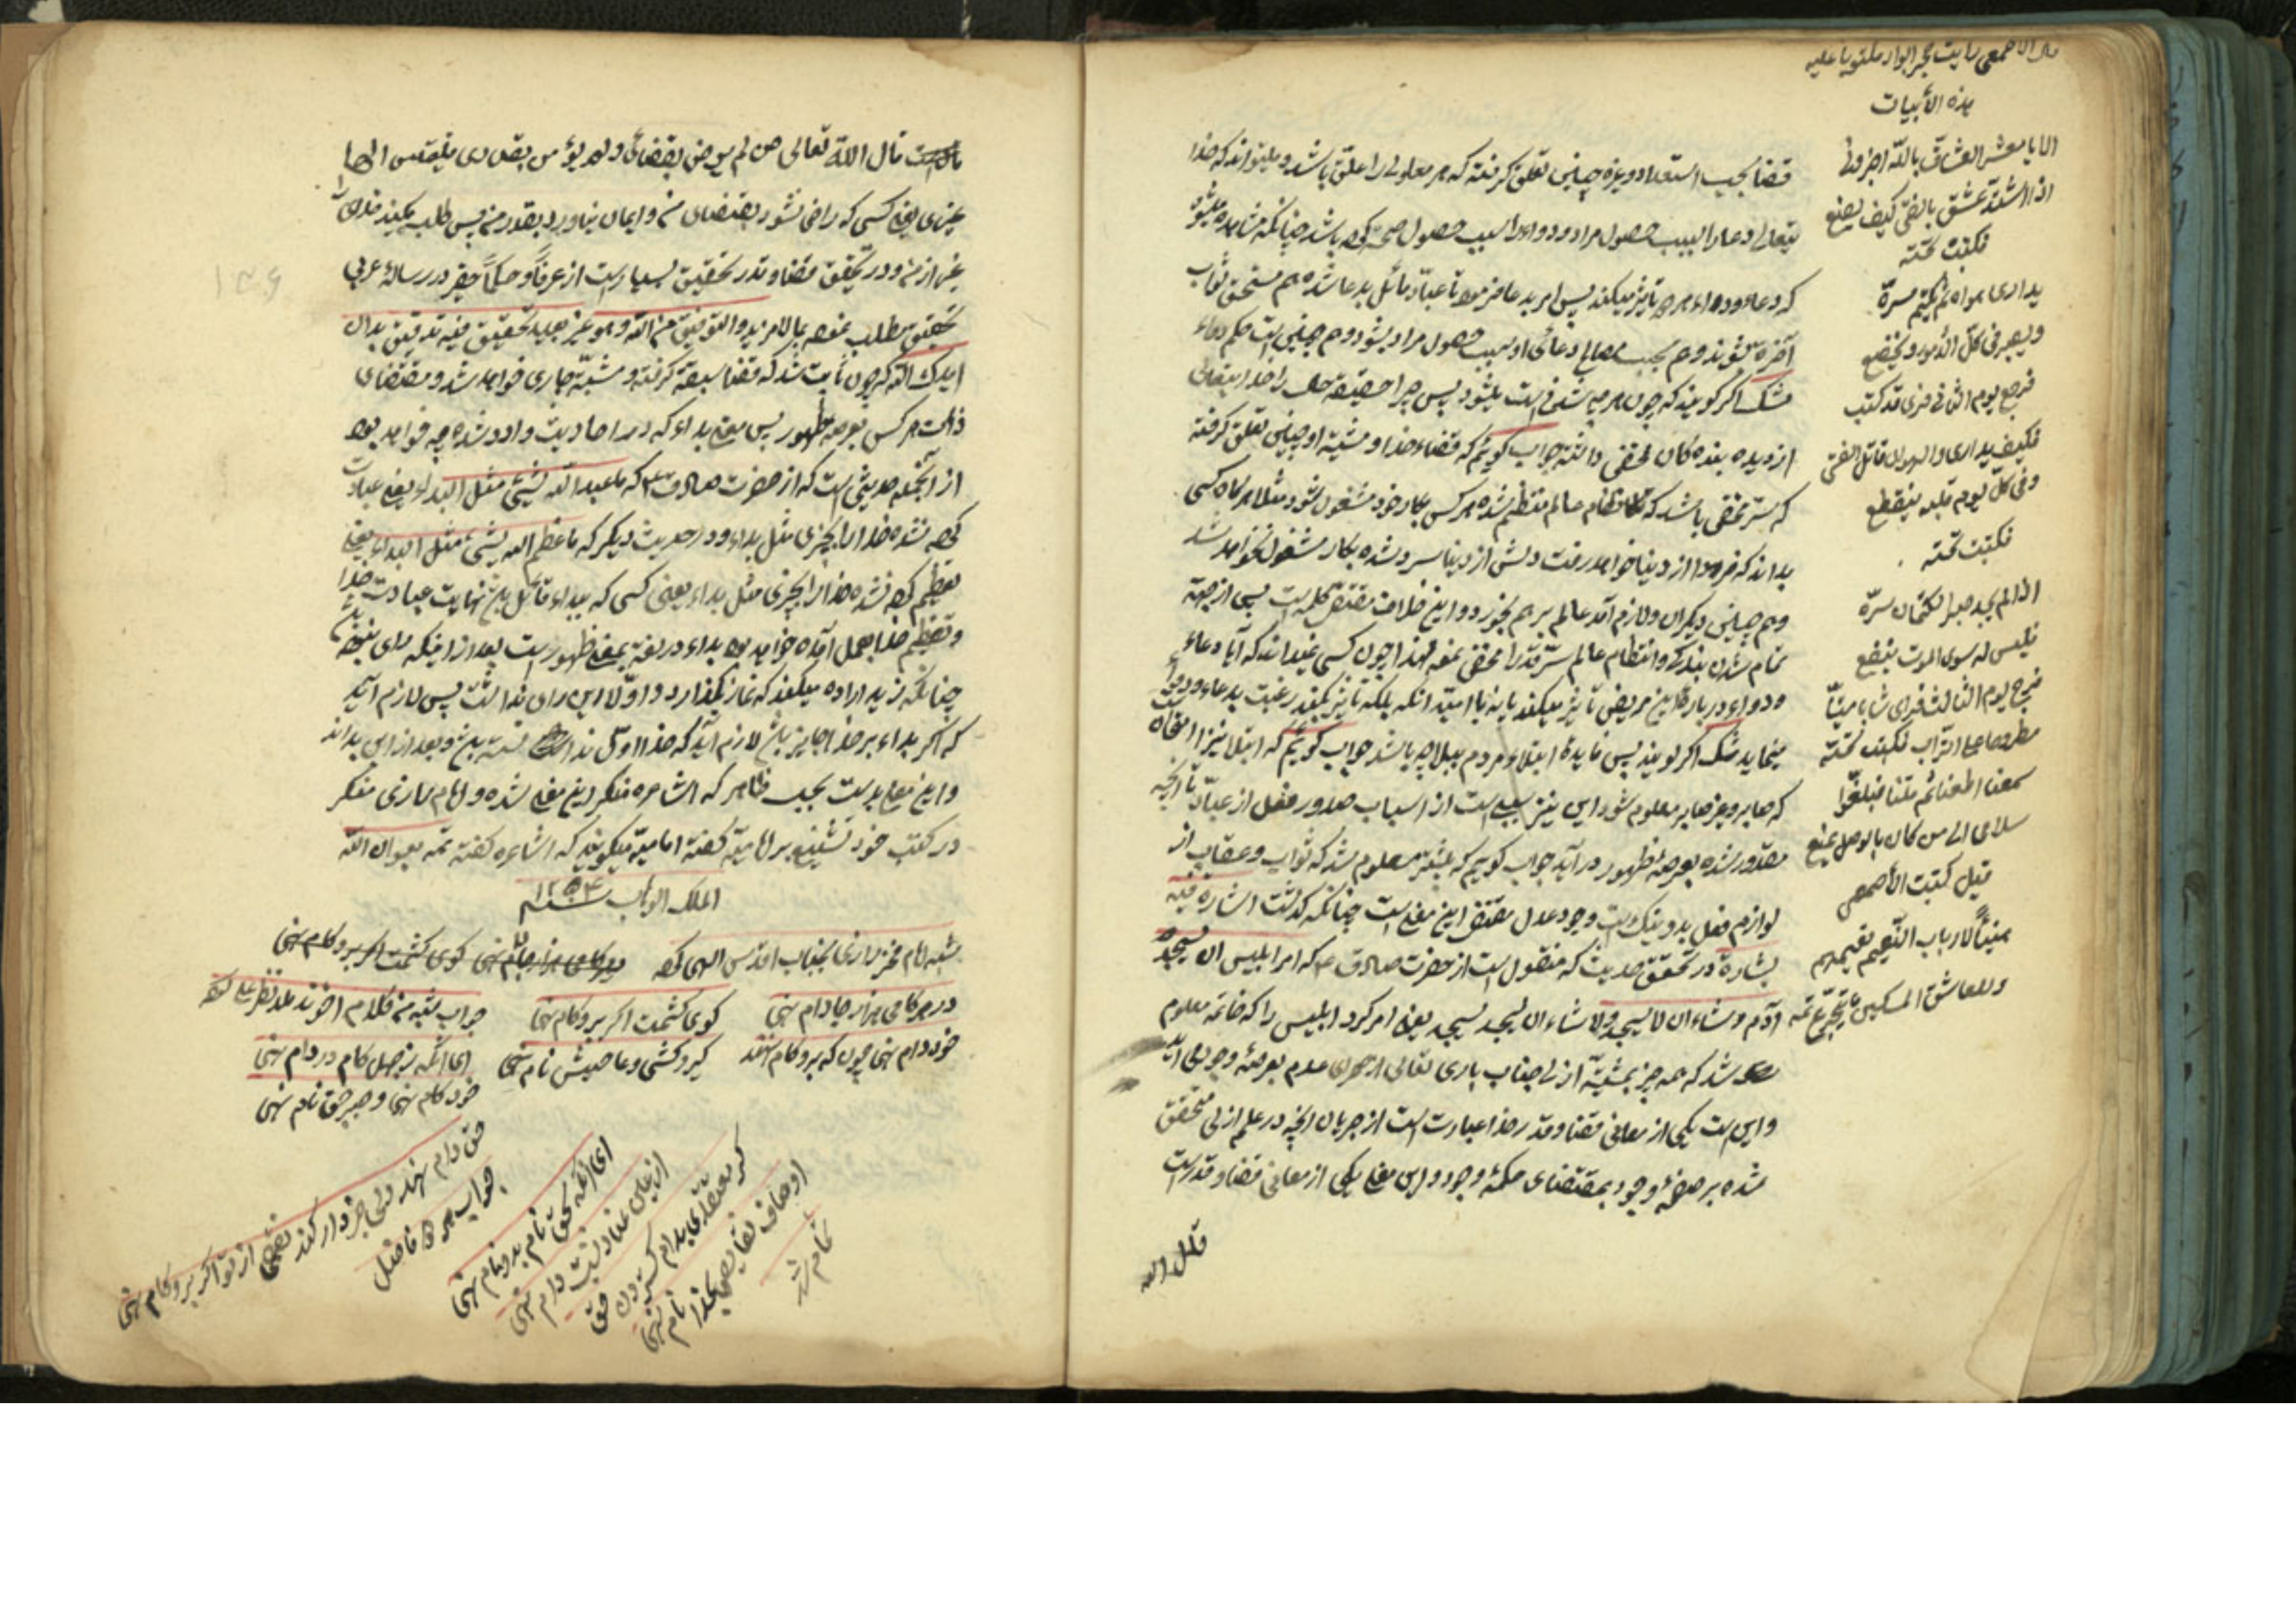 قال الاصمعی رایت حجرا بواد مکتوبا علیه
هذه الأبیات
الا یا معشر العشاق باللّه اخبرونی
اذا اشتدّ عشق بالفتی کیف یصنع
فکتبت تحته
یداری هواه ثم یکتم سرّه
ویصبر فی کلّ الأمور و یخضع
فرجع یوم الثانی فرای قد کتب
فکیف یداری والهوی قاتل الفتی
وفی کلّ یوم قلبه یتقطع
فکتبت تحته
اذا لم یجد صبرا لکتمان سرّه
فلیس له سوی الموت ینفع
فرجع یوم الثالث فرای شابا میتا
مطروحا علی التراب فکتب تحته
سمعنا اطعنا ثم متنا فبلغوا
سلامی الی من کان بالوصل یمنع
قیل کتبت الأصمعی
هنیئاً لارباب النّعیم نعیمهم
وللعاشق المسکین ما یتجرّع تمه
قضا بحسب استعداد و غیره چنین تعلق گرفته که هر معلولی را علتی باشد و میتواند که خدا
یتعالی دعا را سبب حصول مراد و دواء را سبب حصول صحت کرده باشد چنانکه مشاهده میشود
که دعا و دواء هر دو تاثیر میکند پس امر بدعا فرموده تا عباد مائل بدعا شده هم مستحق ثواب
آخرة شوند و هم بحسب مصالح دعای او سبب حصول مراد بشود و هم چنین است حکم دواء
شک اگر گویند که چون هر چه شدنی است میشود پس چرا حقیقة حال را خدا یتعالی
از دیده بنده کان مخفی داشته جواب گویم که قضاء خدا و مشیة او چنین تعلق گرفته
که ستر مخفی باشد که نظام عالم منتظم شده هر کس بکار خود مشغول شود مثلا هرگاه کسی
بداند که فردا از دنیا خواهد رفت دلش از دنیا سرد شده بکار مشغول نخواهد شد
و هم چنین دیگران و لازم آمد عالم بر هم بخورد و این خلاف مقتضی حکمة است پس از جهة
تمام شدن بندگی و انتظام عالم ستر قدر را مخفی نموده لهذا چون کسی نمیداند که آیا دعاء
و دواء درباره این مریض تاثیر میکند یا نه با امید آنکه بلکه تاثیر بکند رغبت بدعاء و دوا
مینماید شک اگر گویند پس فایده ابتلاء مردم ببلا چه باشد جواب گویم که ابتلا نیز امتحان است
که صابر و غیر صابر معلوم شود این نیز سببی است از اسباب صدور فعل از عباد تا آنچه
مقدور شده بعرصه ظهور در آید جواب گویم که بیشتر معلوم شد که ثواب و عقاب از
لوازم فعل بد و نیک است و وجود عدل مقتضی این معنی است چنانکه گذشت اشاره فیه
بشارة در تحقیق حدیث که منقول است از حضرت صادق ع که امر ابلیس ان یسجد
آدم و شاء ان لا یسجد ولا شاء ان یسجد لسجد یعنی امر کرد ابلیس را که خاتمه معلوم
شد که همه چیز بمشیّة ازلی جناب باری تعالی از عدم بعرصۀ وجود می آید
و این است یکی از معانی قضا و قدر خدا عبارت است از جریان آنچه در علم ازلی متحقق
شده بر صفحۀ وجود بمقتضای حکمة وجود و این معنی یکی از معانی قضا و قدر است
قال الله
قال الله تعالی من لم یرض بقضائی ولم یؤمن بقدری فلیلتمس الها
غیری یعنی کسی که راضی نشود بقضای من و ایمان نیاورد بقدر من پس طلب بکند خدای
غیر از من و در تحقیق قضا و قدر تحقیق بسیار است از عرفاً و حکماً حقیر در رسالۀ عربی
تحقیق مطلب نموده بما لا مزید و التوفیق من الله و هو غیر بعید تحقیق فیه تدقیق بدان
ایدک الله که چون ثابت شد که قضا سبقة گرفته و مشیّة جاری خواهد شد و مقتضای
ذات هر کس بعرصه ظهور پس معنی بداء که در احادیث وارد شده چه خواهد بود
از آنجمله حدیثی است که از حضرت صادق ع که ما عبد الله بشیئ مثل البداء یعنی عبادت
کرده نشده خدا را بچیزی مثل بداء و در حدیث دیگر که ما عظم الله بشیئ بمثل البداء یعنی
تعظیم کرده نشده خدا را بچیزی مثل بداء یعنی کسی که ببداء قائل شد نهایت عبادت خدا
و تعظیم خدا بعمل آمده خواهد بود بداء در لغة بمعنی ظهور است بعد از اینکه رای نبوده
چنانکه زید اراده میکند که نماز بگذارد و اوّلا این رای نداشت پس لازم آید
که اگر بداء بر خدا جایز باشد لازم آید که خدا اوّل ندانسته باشد و بعد از این بداند
و این معنی بد است بحسب ظاهر که اشاعره منکر این معنی شده و امام رازی منکر
در کتب خود تشنیع بر امامیّه گفته امامیه میگویند که اشاعره گفته تمه بعون الله
الملک الوهاب سنه ۱۲۵۴
شبه امام فخر رازی بجناب اقدس الهی کرده
در هر کامی هزار جا دام نهی
گوئی کشمت اگر برو کام نهی
خود دام نهی چون که برو کام نهند
گیر و کشی و عاصیش نام نهی
جواب شبه من کلام اخوند ملا نظر علی
ای آنکه ز جهل کام در دام نهی
خود کام نهی و جبر حق نام نهی
حق دام نهد ولی خبردار کند
نقص از تو اگر برو کام نهی
جواب فاضل
ای آنکه بحق نام بد و نام نهی
از عناد نسبت دام نهی
گر معتقدی بدام گستردن حق
اوصاف نقایص بخدا نام نهی
تمام شد